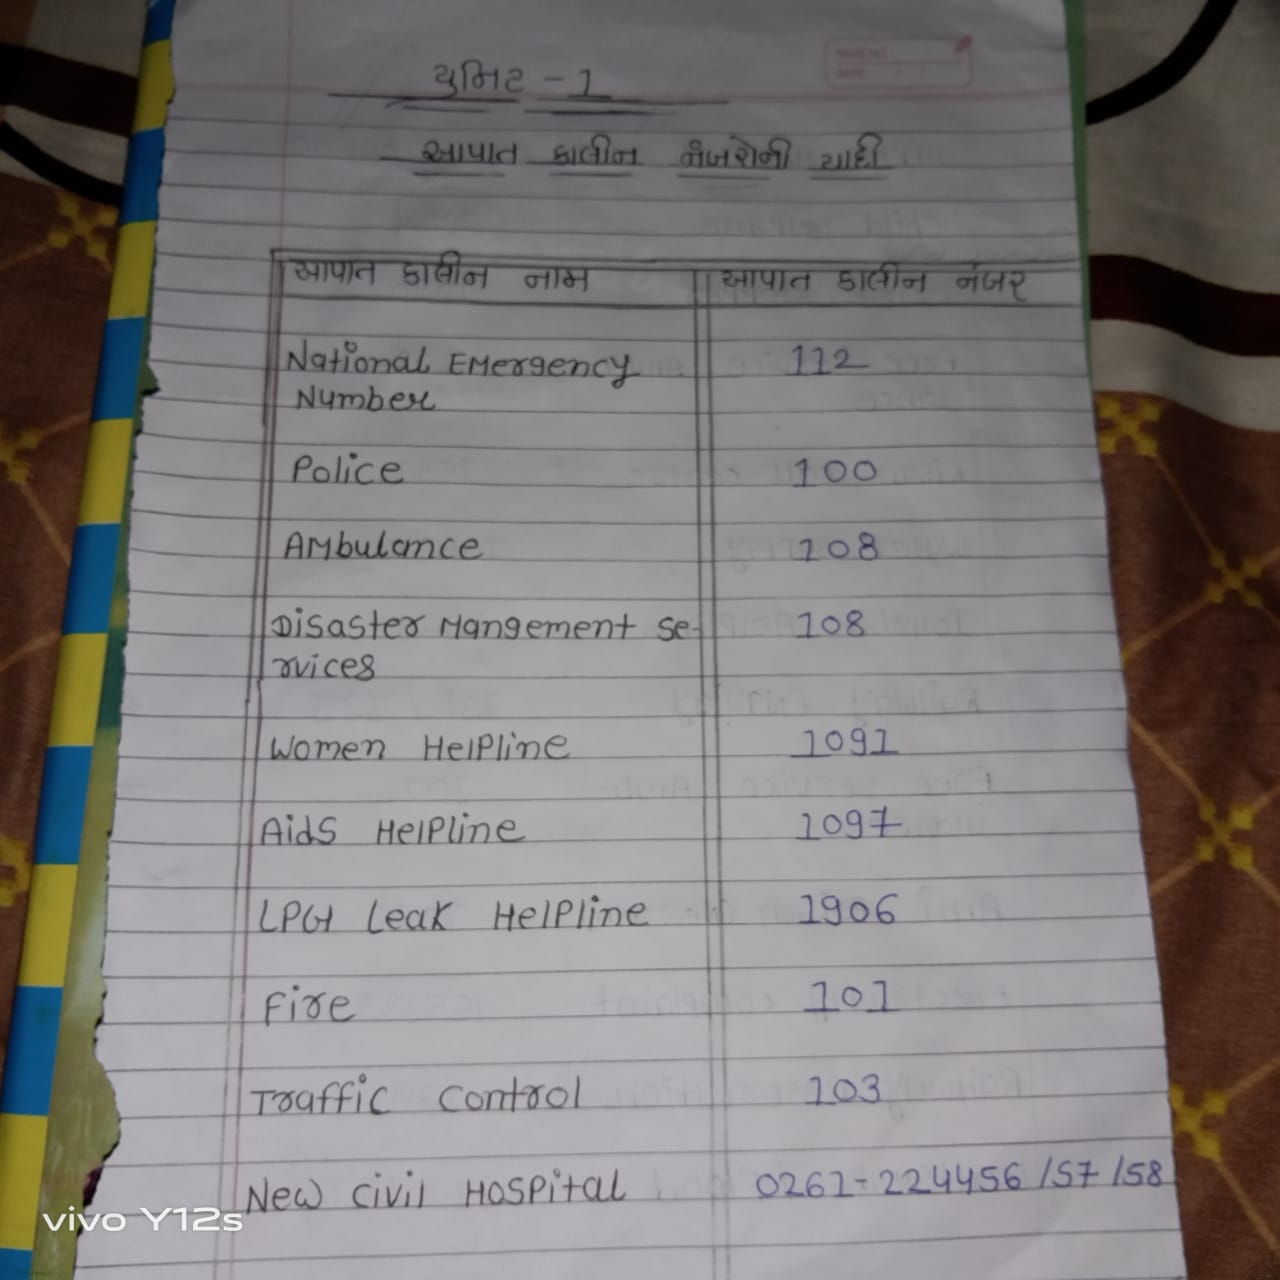 યુનિટ - 1
આપાત કાલીન નંબરોની યાદી
આપાત કાલીન નામ આપાત કાલીન નંબર
National Emergency 112
Number
Police 100
Ambulance 108
Disaster Mangement se- 108
rvices
Women Helpline 1091
Aids Helpline 1097
LPG Leak Helpline 1906
Fire 101
Traffic Control 103
New Civil Hospital 0261-224456/57/58
PAGE NO.:
DATE: / /
vivo Y12s